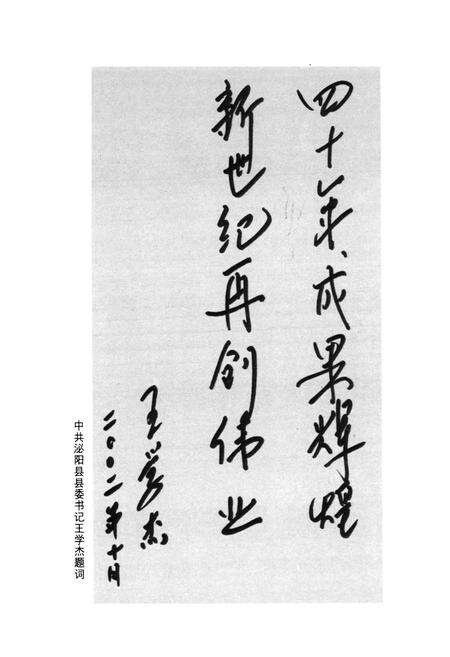 四十年成果辉煌
新世纪再创伟业
王学杰
二〇〇二年十月
中共泌阳县县委书记王学杰题词